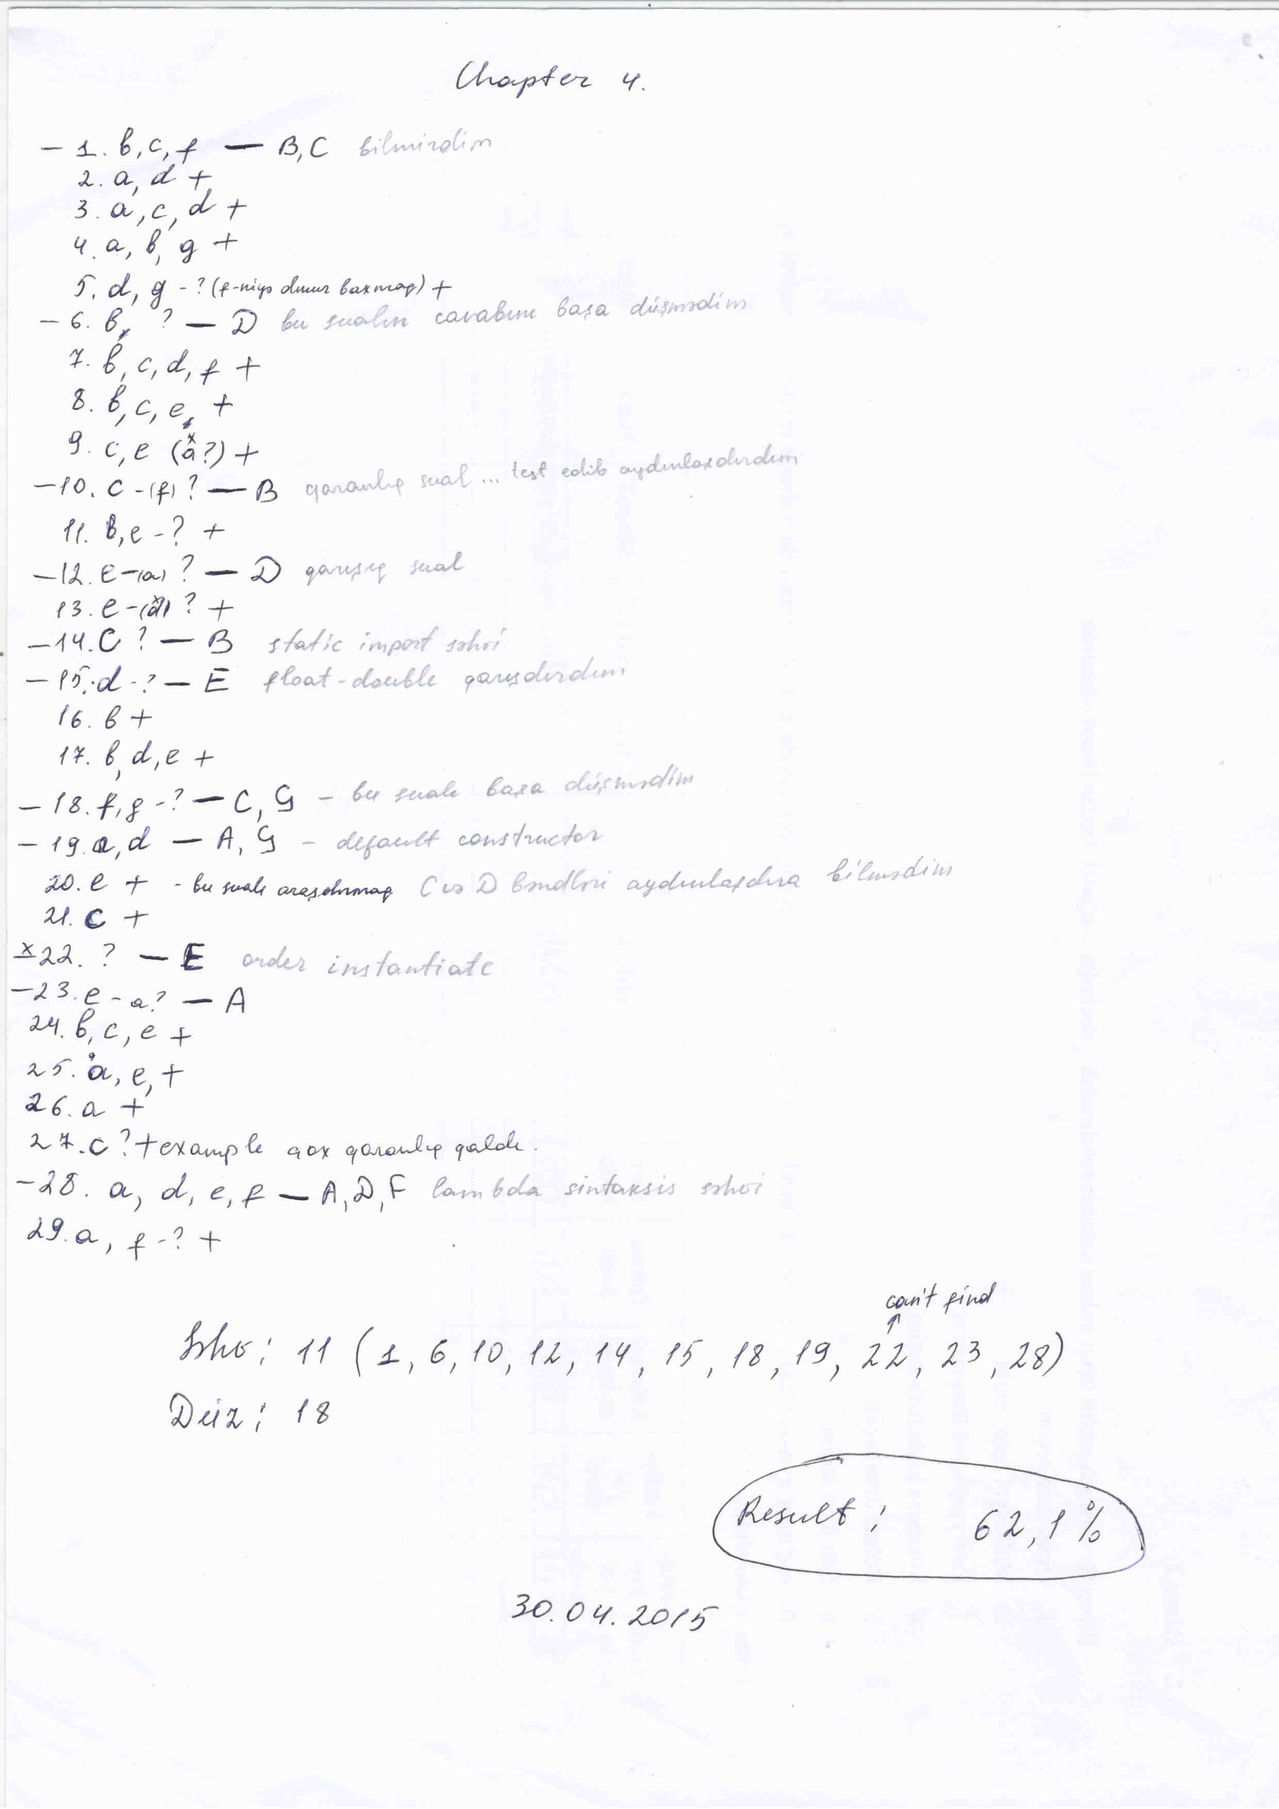 Chapter 4.
- 1. b, c, f — B, C bilmirdim
2. a, d +
3. a, c, d +
4. a, b, g +
5. d, g - ? (f-niyə baxmaq) +
- 6. b, ? — D bu sualın cavabını başa düşmədim
7. b, c, d, f +
8. b, c, e, +
9. c, e (a?) +
- 10. c - (f) ? — B qaranlıq sual ... test edib aydınlaşdırdım
11. b, e - ? +
- 12. e - (a) ? — D qarışıq sual
13. e - (d) ? +
- 14. C ? — B static import səhvi
- 15. d - ? — E float-double qarışdırdım
16. b +
17. b, d, e +
- 18. f, g - ? — C, G - bu sualı başa düşmədim
- 19. a, d — A, G - default constructor
20. e + - bu sualı araşdırmaq C və D bəndləri aydınlaşdıra bilmədim
21. C +
x 22. ? — E order instantiate
- 23. e - a? — A
24. b, c, e +
25. a, e, +
26. a +
27. c ? + example çox qaranlıq qaldı.
- 28. a, d, e, f — A, D, F lambda sintaksis səhvi
29. a, f - ? +
can't find
Səhv: 11 (1, 6, 10, 12, 14, 15, 18, 19, 22, 23, 28)
Düz: 18
Result: 62,1%
30.04.2015